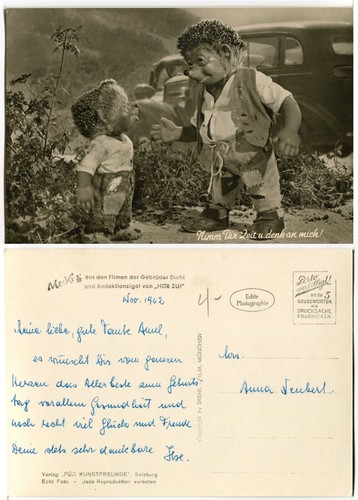 Nimm Dir Zeit u. denk an mich!
Mecki aus den Filmen der Gebrüder Diehl
und Redaktionsigel von „HÖR ZU!"
Nov. 1962
4,-
Echte
Photographie
Porto
mit bis zu 5
GRUSSWORTEN
ALS
DRUCKSACHE
FRANKIEREN
Meine liebe, gute Tante Anel,
es wünscht Dir vom ganzen
Herzen das Allerbeste zum Geburts
tag vorallem Gesundheit und
noch recht viel Glück und Freude
Deine stets sehr dankbare Ilse.
Frau
Anna Seubert
Copyright by DIEHL-FILM, MÜNCHEN
Verlag „FÜR KUNSTFREUNDE" Salzburg
Echt Foto - Jede Reproduktion verboten